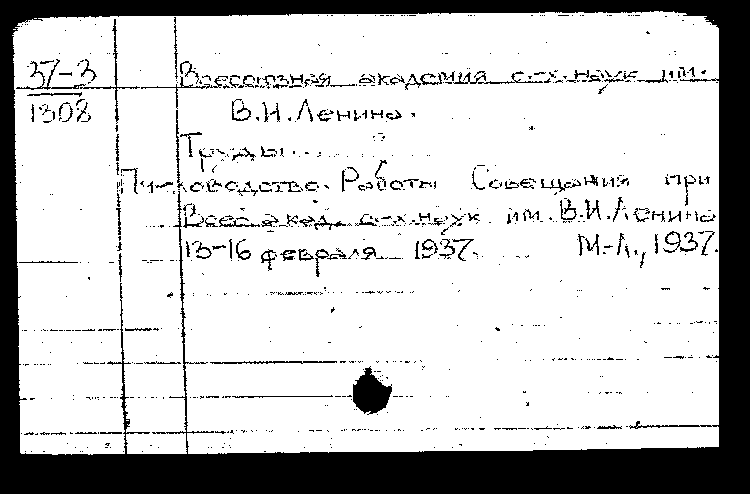 37-3
1308
Всесоюзная академия с.-х. наук им.
В.И.Ленина.
Труды...
Пчеловодство. Работы Совещания при
Всес.акад. с-х.наук им. В.И.Ленина
13-16 февраля 1937. М-Л., 1937.